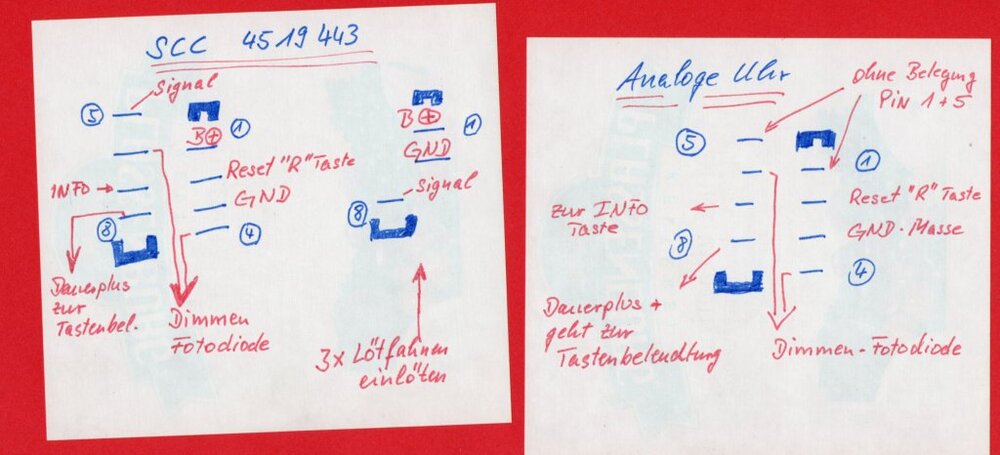 SCC 4519443
Signal
5
B+ 1
INFO
Reset "R" Taste
GND
8
4
Dauerplus
zur
Tastenbel.
Dimmen
Fotodiode
B+
1
GND
Signal
8
3x Lötfahnen
einlöten
Analoge Uhr
ohne Belegung
Pin 1+5
5
1
Reset "R" Taste
zur INFO
Taste
GND-Masse
8
4
Dauerplus +
geht zur
Tastenbeleuchtung
Dimmen-Fotodiode